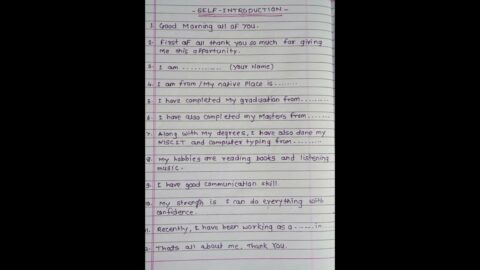 - SELF-INTRODUCTION -
1. Good Morning all of You.
2. First of all thank you so much for giving
Me this opportunity.
3. I am ............ (Your Name)
4. I am from / My native Place is ........
5. I have completed My graduation from.........
6. I have also completed my Masters from.......
7. Along with My degrees, I have also done my
MSCIT and computer typing from.........
8. My hobbies are reading books and listening
music.
9. I have good communication skill
10. My strength is I can do everything with
confidence.
11. Recently, I have been working as a ...... in
12. Thats all about me, Thank You.